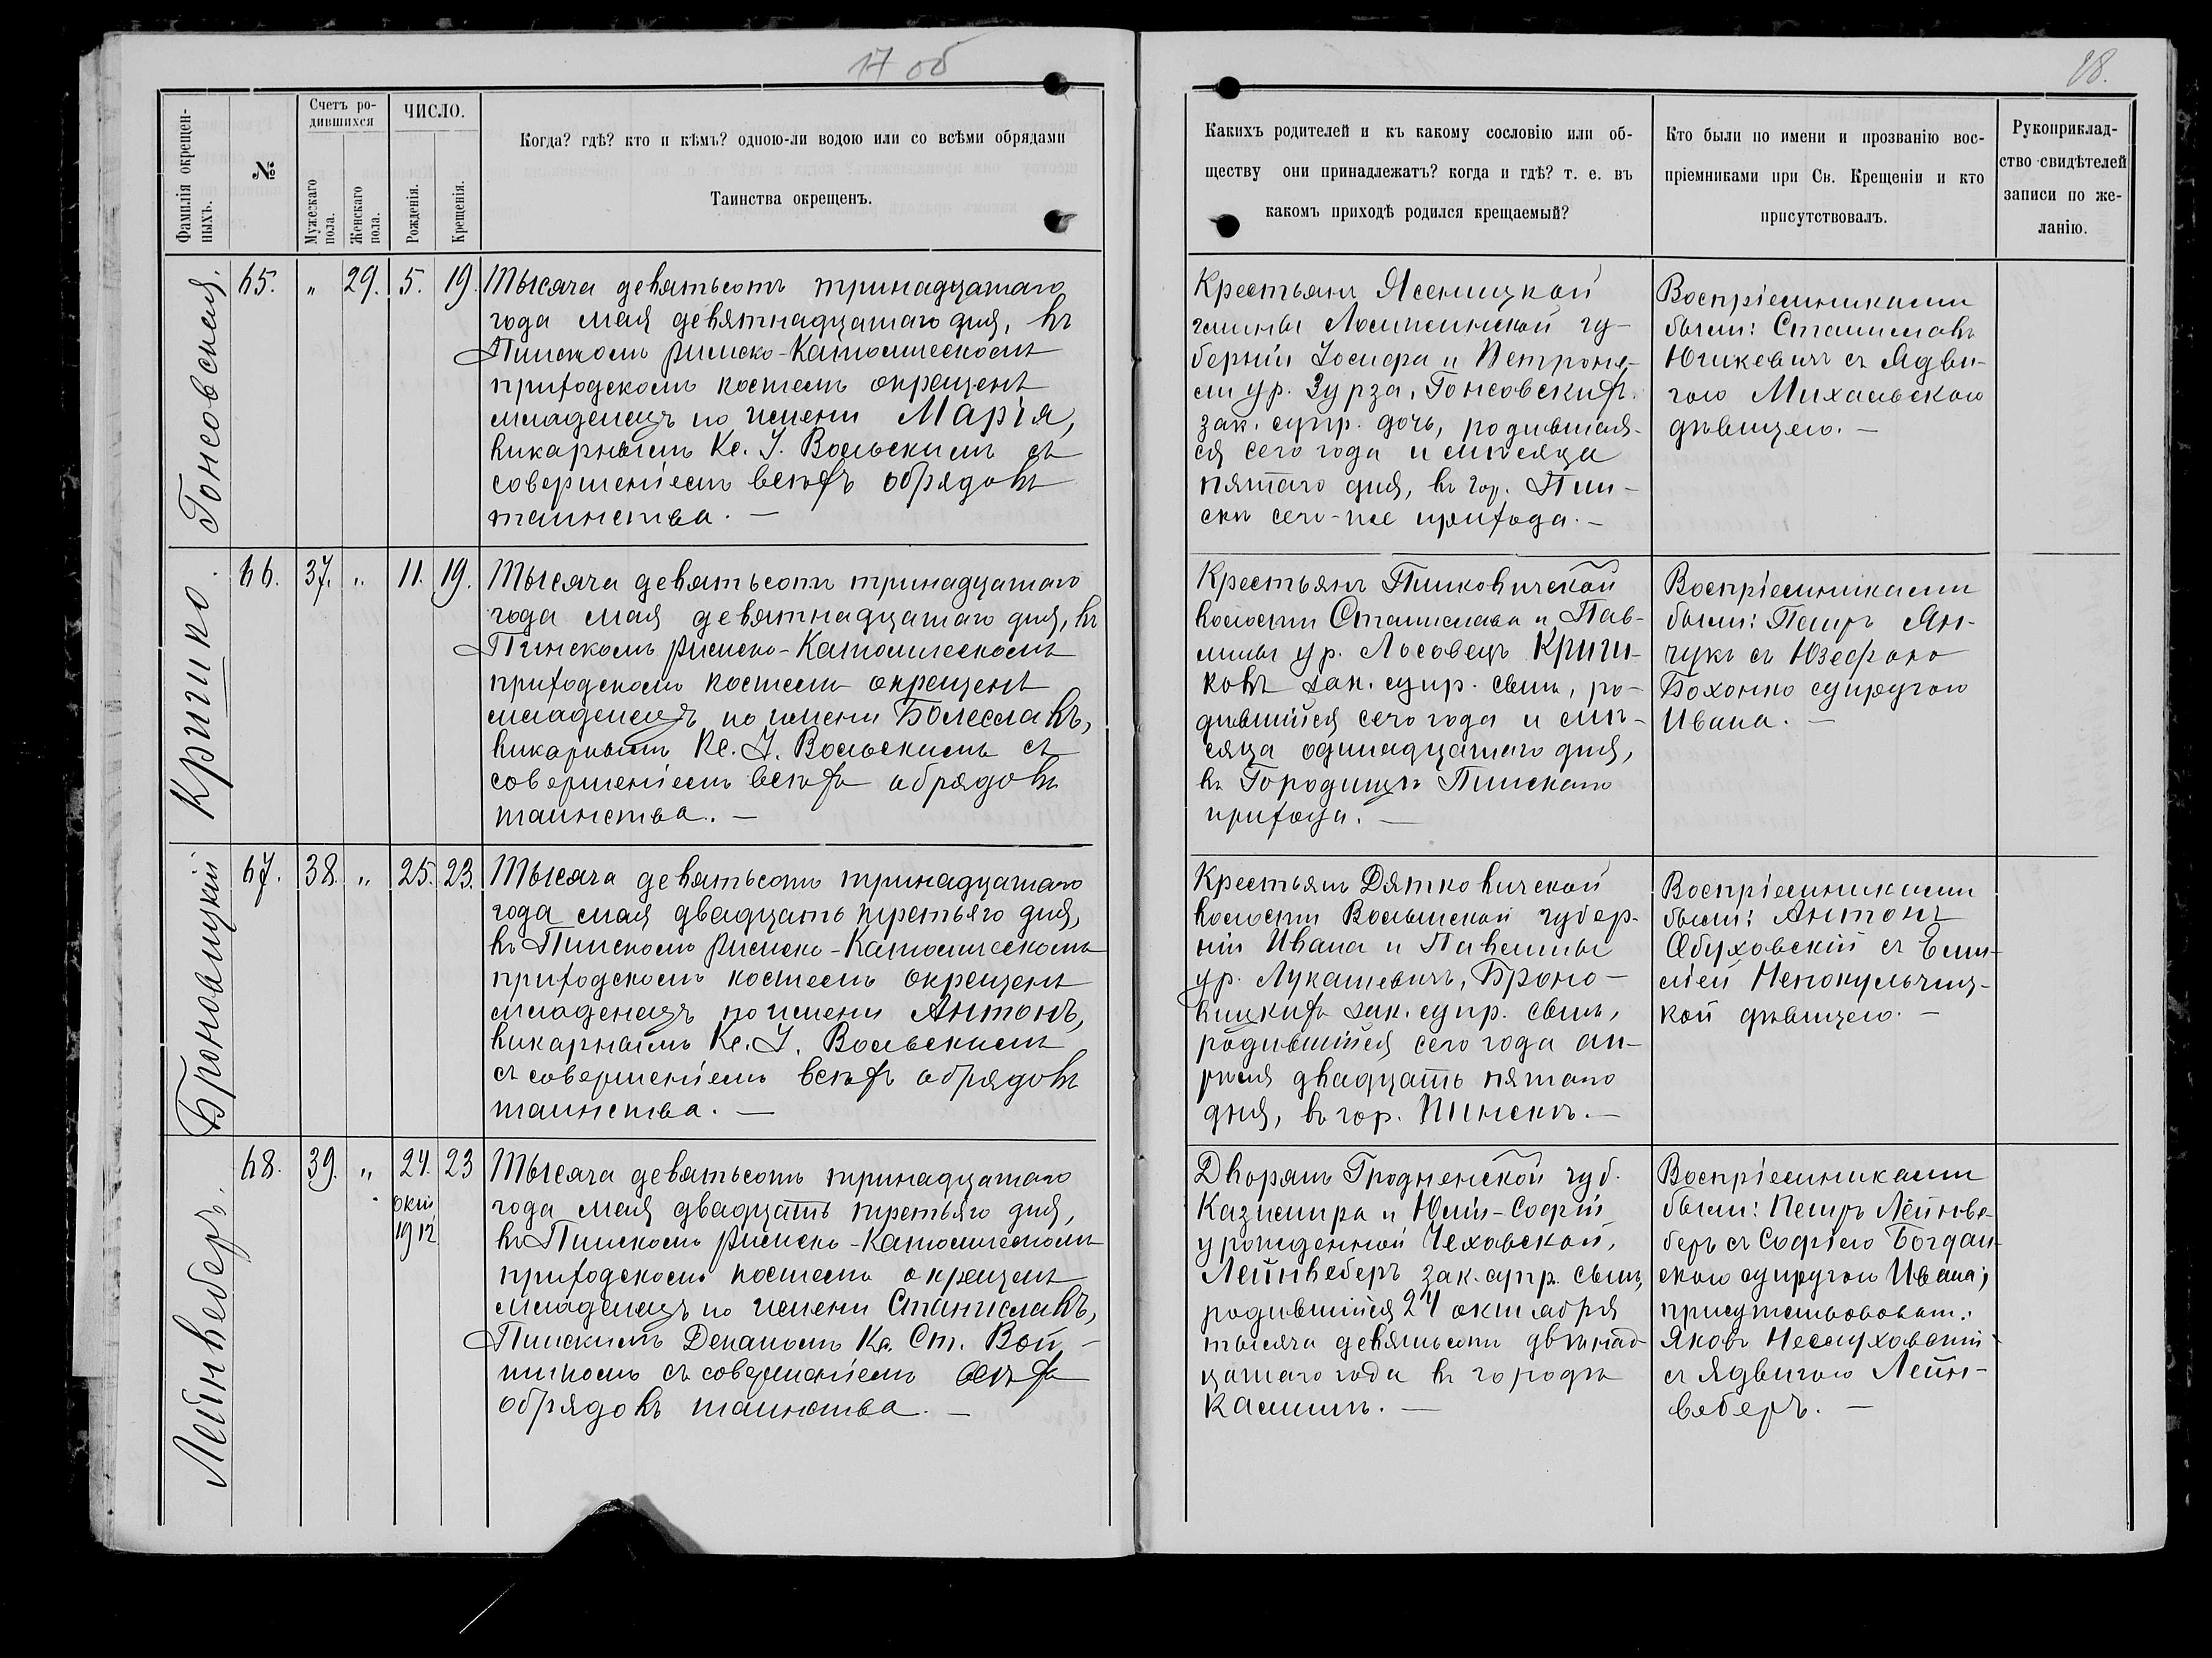 17 об
18.
Фамилія окрещен-
ныхъ.
№
Счетъ ро-
дившихся
Мужескаго
пола.
Женскаго
пола.
ЧИСЛО.
Рожденія.
Крещенія.
Когда? гдѣ? кто и кѣмъ? одною-ли водою или со всѣми обрядами
Таинства окрещенъ.
Какихъ родителей и къ какому сословію или об-
ществу они принадлежатъ? когда и гдѣ? т. е. въ
какомъ приходѣ родился крещаемый?
Кто были по имени и прозванію вос-
пріемниками при Св. Крещеніи и кто
присутствовалъ.
Рукоприклад-
ство свидѣтелей
записи по же-
ланію.
Гонсовская.
65. " 29. 5. 19.
Тысяча девятьсотъ тринадцатаго
года мая девятнадцатаго дня, въ
Пинскомъ Римско-Католическомъ
приходскомъ костелѣ окрещенъ
младенецъ по имени Марія,
викарнымъ Кс. І. Вольскимъ съ
совершеніемъ всѣхъ обрядовъ
таинства. —
Крестьянъ Ясеницкой
гмины Ломжинской гу-
берніи Іосифа и Петроне-
ли ур. Зурза, Гонсовскихъ
зак. супр. дочь, родившая-
ся сего года и мѣсяца
пятаго дня, въ гор. Пин-
скѣ сего-же прихода. —
Воспріемниками
были: Станиславъ
Юшкевичъ съ Ядви-
гою Михальскою
дѣвицею. —
Кришко.
66. 37. " 11. 19.
Тысяча девятьсотъ тринадцатаго
года мая девятнадцатаго дня, въ
Пинскомъ Римско-Католическомъ
приходскомъ костелѣ окрещенъ
младенецъ по имени Болеславъ,
викарнымъ Кс. І. Вольскимъ съ
совершеніемъ всѣхъ обрядовъ
таинства. —
Крестьянъ Пинковичской
волости Станислава и Пав-
лины ур. Лосовецъ Криш-
ковъ зак. супр. сынъ, ро-
дившійся сего года и мѣ-
сяца одинадцатаго дня,
въ Городищѣ Пинскаго
прихода. —
Воспріемниками
были: Петръ Ян-
чукъ съ Юзефою
Бохонко супругою
Ивана. —
Броновицкій
67. 38. " 25. 23.
Тысяча девятьсотъ тринадцатаго
года мая двадцать третьяго дня,
въ Пинскомъ Римско-Католическомъ
приходскомъ костелѣ окрещенъ
младенецъ по имени Антонъ,
викарнымъ Кс. І. Вольскимъ
съ совершеніемъ всѣхъ обрядовъ
таинства. —
Крестьянъ Дятковичской
волости Волынской губер-
ніи Ивана и Павелины
ур. Лукашевичъ, Броно-
вицкихъ зак. супр. сынъ,
родившійся сего года ап-
рѣля двадцать пятаго
дня, въ гор. Пинскѣ. —
Воспріемниками
были: Антонъ
Обуховскій съ Еми-
ліей Непокульчиц-
кой дѣвицею. —
Лейнвеберъ.
68. 39. " 24. 23
окт.
1912
Тысяча девятьсотъ тринадцатаго
года мая двадцать третьяго дня,
въ Пинскомъ Римско-Католическомъ
приходскомъ костелѣ окрещенъ
младенецъ по имени Станиславъ,
Пинскимъ Деканомъ Кс. Ст. Вой-
тикомъ съ совершеніемъ всѣхъ
обрядовъ таинства. —
Дворянъ Гродненской губ.
Казимира и Юліи-Софіи
урожденной Чеховской,
Лейнвеберъ зак. супр. сынъ,
родившійся 24 октября
тысяча девятьсотъ двѣнад-
цатаго года въ городѣ
Калишѣ. —
Воспріемниками
были: Петръ Лейнве-
беръ съ Софіею Богдан-
скою супругою Ивана;
присутствовали:
Яковъ Неслуховскій
съ Ядвигою Лейн-
веберъ. —